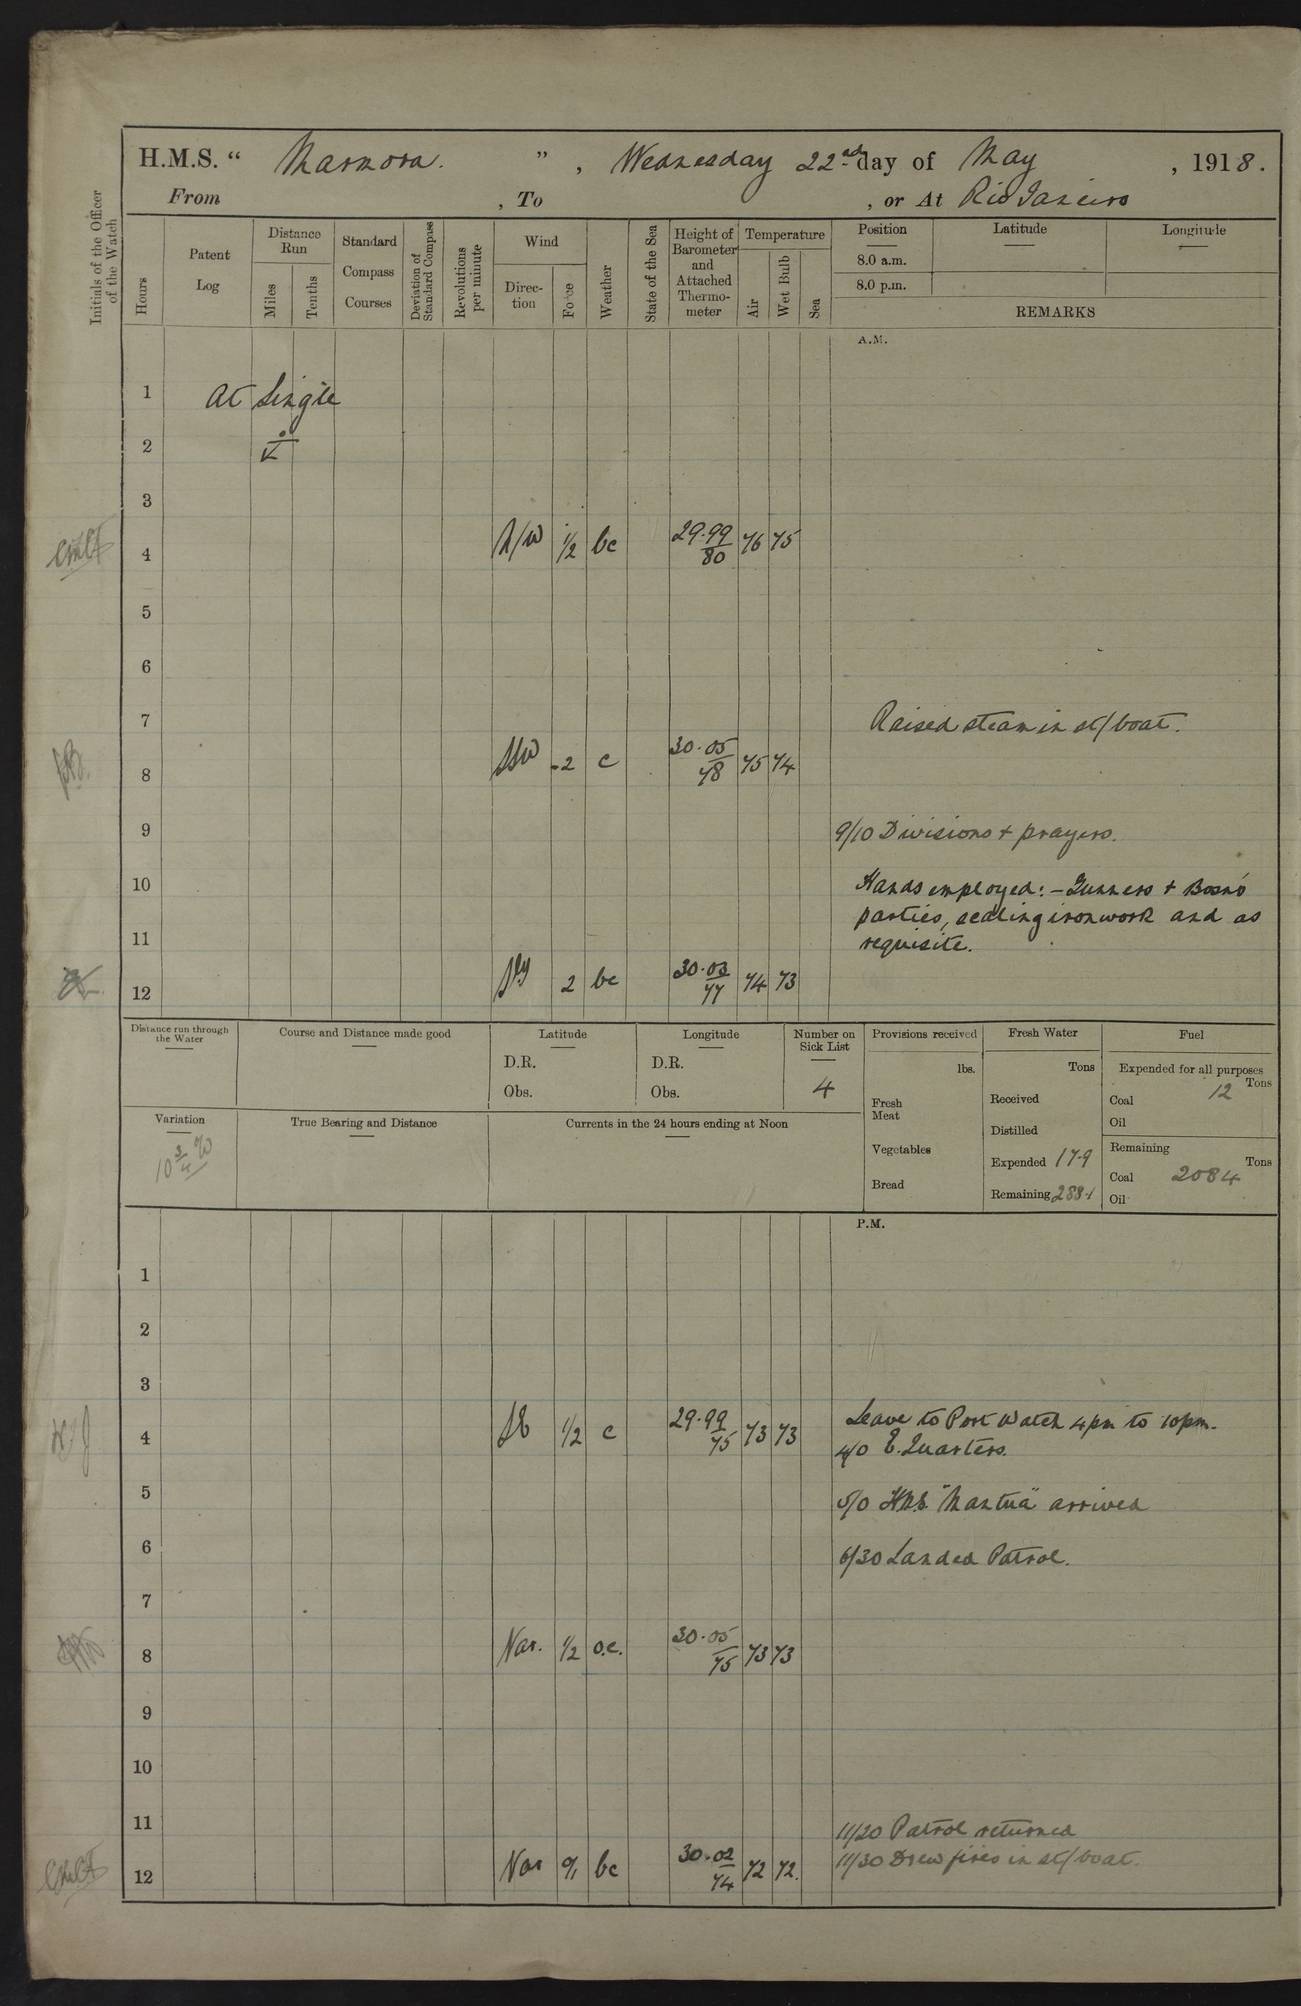 H.M.S. " Marmora. ", Wednesday 22nd day of May, 1918.
From , To , or At Rio Janeiro
Initials of the Officer of the Watch
Hours
Patent Log
Distance Run
Miles
Tenths
Standard Compass Courses
Deviation of Standard Compass
Revolutions per minute
Wind
Direction
Force
Weather
State of the Sea
Height of Barometer and Attached Thermometer
Temperature
Air
Wet Bulb
Sea
Position
8.0 a.m.
8.0 p.m.
Latitude
Longitude
REMARKS
A.M.
1 At Single
2
3
4 N/W 1/2 bc 29.99 80 76 75
5
6
7 Raised steam in st/boat.
8 SSW -2 c 30.05 78 75 74
9 9/10 Divisions + prayers.
10 Hands employed:- Gunners + Bosn's
parties, scaling ironwork and as
11 requisite.
12 Sly 2 bc 30.03 77 74 73
Distance run through the Water
Course and Distance made good
Latitude
D.R.
Obs.
Longitude
D.R.
Obs.
Number on Sick List
4
Provisions received
lbs.
Fresh Meat
Vegetables
Bread
Fresh Water
Tons
Received
Distilled
Expended 179
Remaining 288.1
Fuel
Expended for all purposes
Tons
Coal 12
Oil
Remaining
Tons
Coal 2084
Oil
Variation
10 3/4 W
True Bearing and Distance
Currents in the 24 hours ending at Noon
P.M.
1
2
3
4 SE 1/2 c 29.99 75 73 73 Leave to Port Watch 4pm to 10pm.
4/0 E. Quarters.
5 5/0 HMS "Mantua" arrived
6 6/30 Landed Patrol.
7
8 Var. 1/2 o.c. 30.05 75 73 73
9
10
11 11/20 Patrol returned
11/30 Drew fires in st/boat.
12 Var 0/1 bc 30.02 74 72 72.